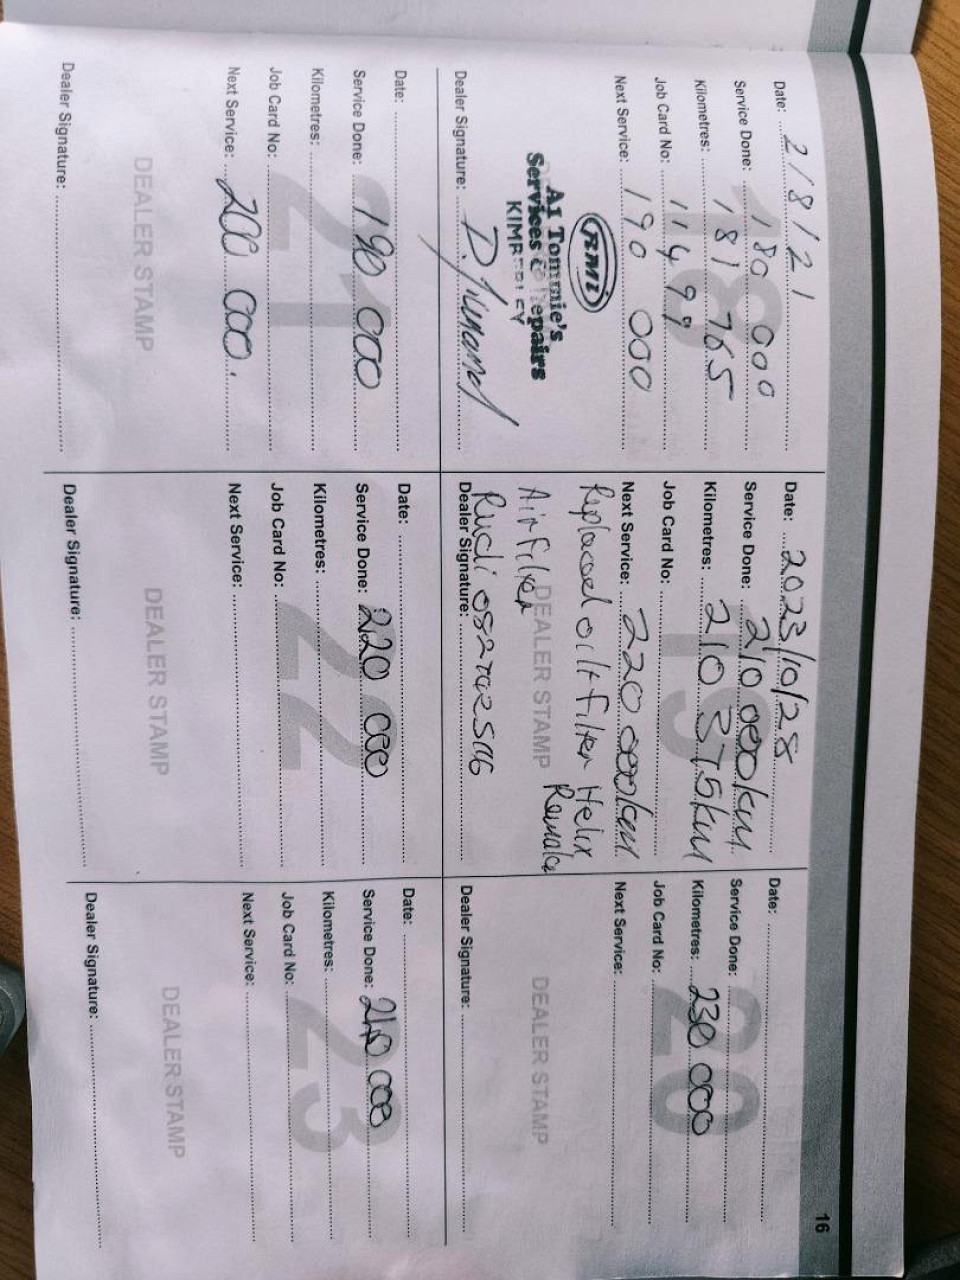 16
Date: 2/8/21
Service Done: 180 000
Kilometres: 181 765
Job Card No: 11499
Next Service: 190 000
18
RMI
A1 Tommie's
Services & Repairs
KIMBERLEY
Dealer Signature:
Date: 2023/10/28
Service Done: 210 000km
Kilometres: 210 375km
Job Card No:
Next Service: 220 000km
19
Replaced oil+filter Helix
Airfilter
DEALER STAMP
Dealer Signature:
Rudi
Date:
Service Done:
Kilometres: 230 000
Job Card No:
Next Service:
20
DEALER STAMP
Dealer Signature:
Date:
Service Done: 190 000
Kilometres:
Job Card No:
Next Service: 200 000.
21
DEALER STAMP
Dealer Signature:
Date:
Service Done: 220 000
Kilometres:
Job Card No:
Next Service:
22
DEALER STAMP
Dealer Signature:
Date:
Service Done: 240 000
Kilometres:
Job Card No:
Next Service:
23
DEALER STAMP
Dealer Signature: